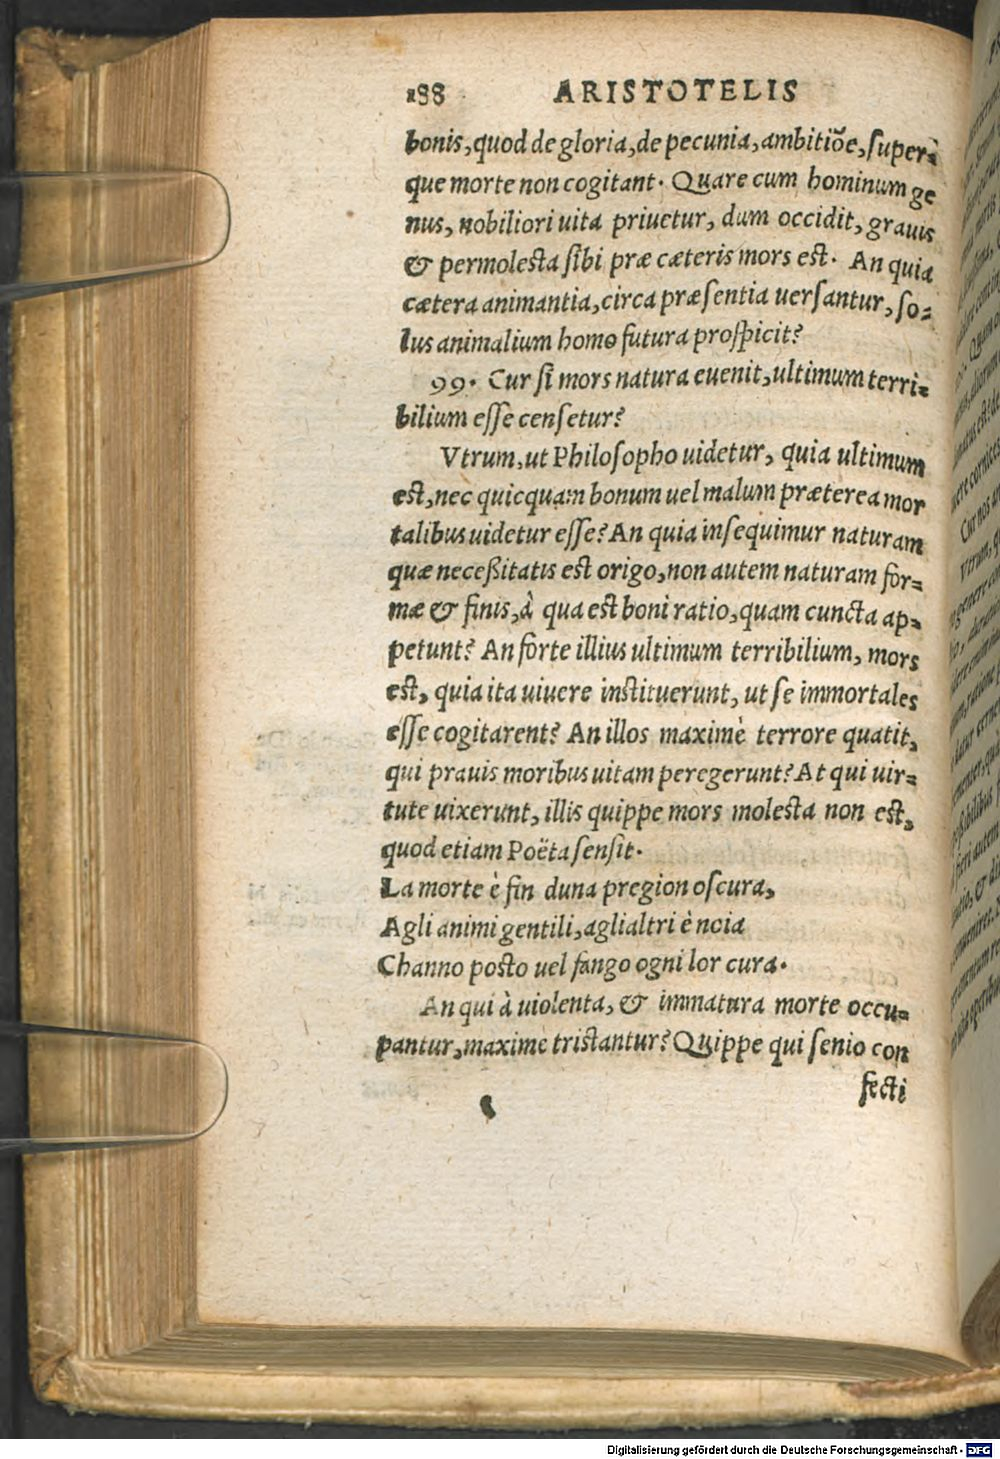 188 ARISTOTELIS
bonis, quod de gloria, de pecunia, ambitiōe, superè
que morte non cogitant. Quare cum hominum ge
nus, nobiliori uita priuetur, dum occidit, grauis
& permolesta sibi præ cæteris mors est. An quia
cætera animantia, circa præsentia uersantur, so-
lus animalium homo futura prospicit?
99. Cur si mors natura euenit, ultimum terri-
bilium esse censetur?
Vtrum, ut Philosopho uidetur, quia ultimum
est, nec quicquam bonum uel malum præterea mor
talibus uidetur esse? An quia insequimur naturam
quæ neceßitatis est origo, non autem naturam for-
mæ & finis, à qua est boni ratio, quam cuncta ap-
petunt? An forte illius ultimum terribilium, mors
est, quia ita uiuere instituerunt, ut se immortales
esse cogitarent? An illos maximè terrore quatit,
qui prauis moribus uitam peregerunt? At qui uir-
tute uixerunt, illis quippe mors molesta non est,
quod etiam Poëta sensit.
La morte è fin duna pregion oscura,
Agli animi gentili, aglialtri è noia
Channo posto uel fango ogni lor cura.
An qui à uiolenta, & immatura morte occu-
pantur, maximè tristantur? Quippe qui senio con
fecti
Digitalisierung gefördert durch die Deutsche Forschungsgemeinschaft - DFG